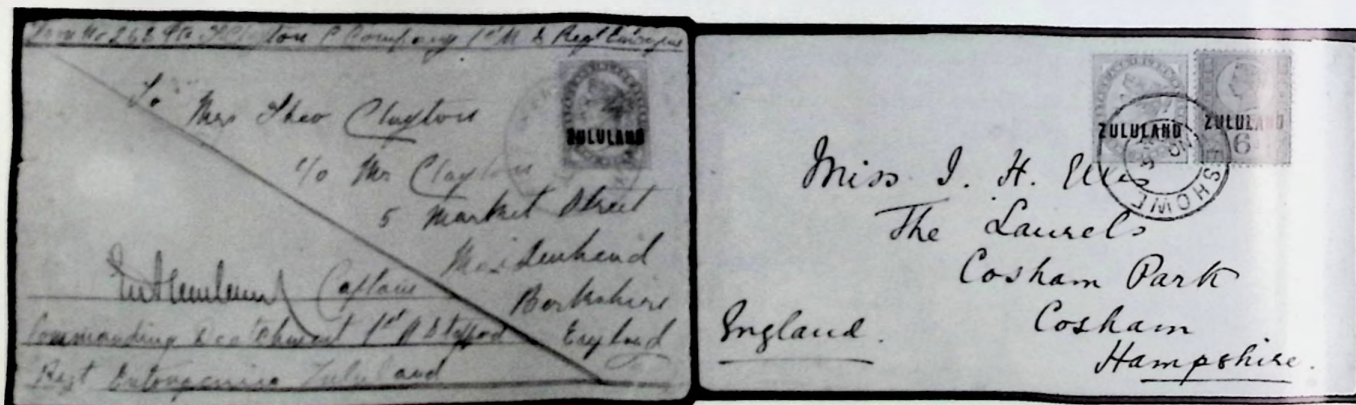 263 Pte Clayton C Company 1st
To Mrs Theo Clayton
c/o Mr Clayton
5 Market Street
Maidenhead
Berkshire
England
Captain
Commanding Detachment 1st Stafford
Regt Zululand
ZULULAND
ZULULAND
ZULULAND
6
ESHOWE
Miss I. H. Ellis
The Laurels
Cosham Park
Cosham
Hampshire.
England.